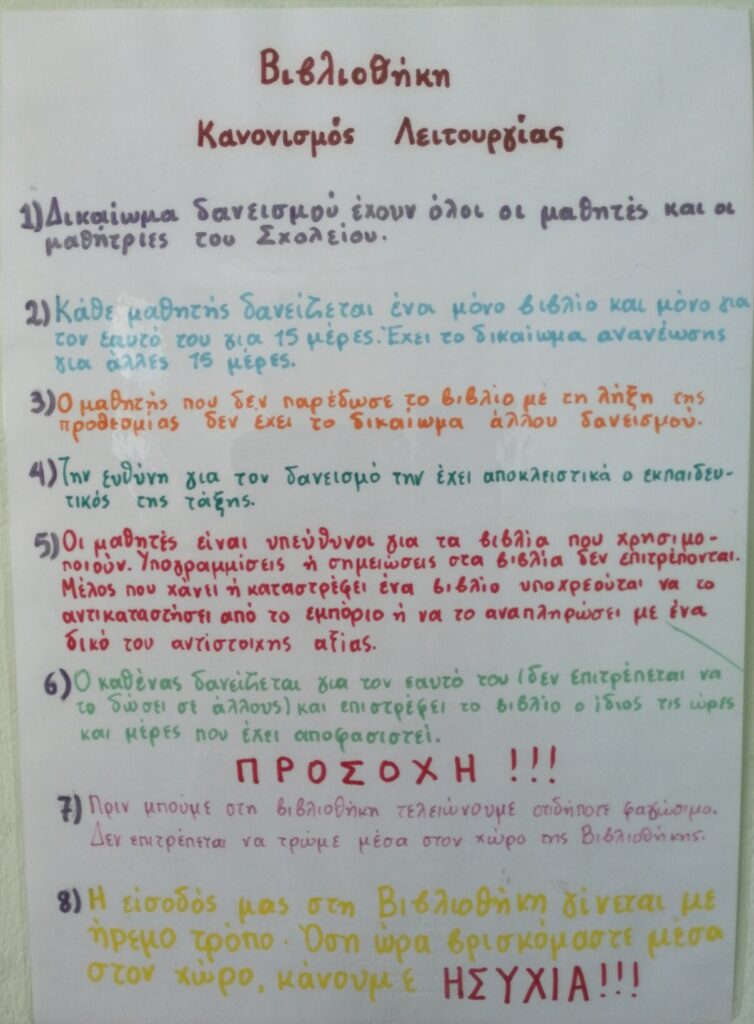 Βιβλιοθήκη
Κανονισμός Λειτουργίας
1) Δικαίωμα δανεισμού έχουν όλοι οι μαθητές και οι
μαθήτριες του Σχολείου.
2) Κάθε μαθητής δανείζεται ένα μόνο βιβλίο και μόνο για
τον εαυτό του για 15 μέρες. Έχει το δικαίωμα ανανέωσης
για άλλες 15 μέρες.
3) Ο μαθητής που δεν παρέδωσε το βιβλίο με τη λήξη της
προθεσμίας δεν έχει το δικαίωμα άλλου δανεισμού.
4) Την ευθύνη για τον δανεισμό την έχει αποκλειστικά ο εκπαιδευ-
τικός της τάξης.
5) Οι μαθητές είναι υπεύθυνοι για τα βιβλία που χρησιμο-
ποιούν. Υπογραμμίσεις ή σημειώσεις στα βιβλία δεν επιτρέπονται.
Μέλος που χάνει ή καταστρέφει ένα βιβλίο υποχρεούται να το
αντικαταστήσει από το εμπόριο ή να το αναπληρώσει με ένα
δικό του αντίστοιχης αξίας.
6) Ο καθένας δανείζεται για τον εαυτό του (δεν επιτρέπεται να
το δώσει σε άλλους) και επιστρέφει το βιβλίο ο ίδιος τις ώρες
και μέρες που έχει αποφασιστεί.
ΠΡΟΣΟΧΗ !!!
7) Πριν μπούμε στη βιβλιοθήκη τελειώνουμε οτιδήποτε φαγώσιμο.
Δεν επιτρέπεται να τρώμε μέσα στον χώρο της Βιβλιοθήκης.
8) Η είσοδός μας στη Βιβλιοθήκη γίνεται με
ήρεμο τρόπο. Όση ώρα βρισκόμαστε μέσα
στον χώρο, κάνουμε ΗΣΥΧΙΑ!!!